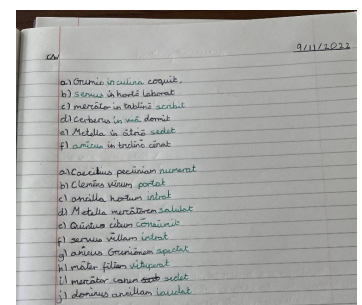 9/11/2022
CW
a) Grumio in culina coquit.
b) servus in hortō laborat
c) mercātor in tablīnō scribit
d) Cerberus in viā dormit
e) Metella in ātriō sedet
f) amīcus in triclīnō cēnat
a) Caecilius pecūniam numerat
b) Clēmēns vīnum portat
c) ancilla hortum intrat
d) Metella mercātōrem salutat
e) Quīntus cibum cōnsūmit
f) servus vīllam intrat
g) amīcus Grumiōnem spectat
h) māter fīlium vituperat
i) mercātor canem sedet
j) dominus ancillam laudat